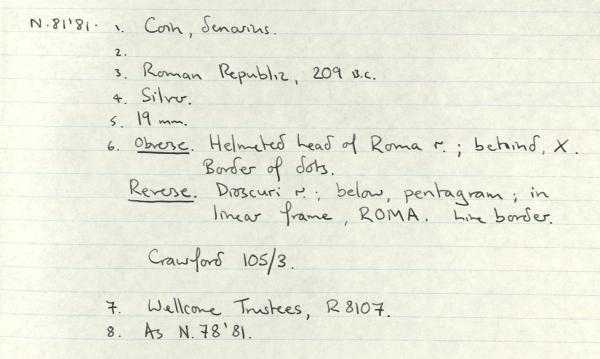 N.81'81. 1. Coin, denarius.
2.
3. Roman Republic, 209 B.C.
4. Silver.
5. 19 mm.
6. Obverse. Helmeted head of Roma r. ; behind, X.
Border of dots.
Reverse. Dioscuri r. ; below, pentagram ; in
linear frame, ROMA. Line border.
Crawford 105/3.
7. Wellcome Trustees, R8107.
8. As N.78'81.